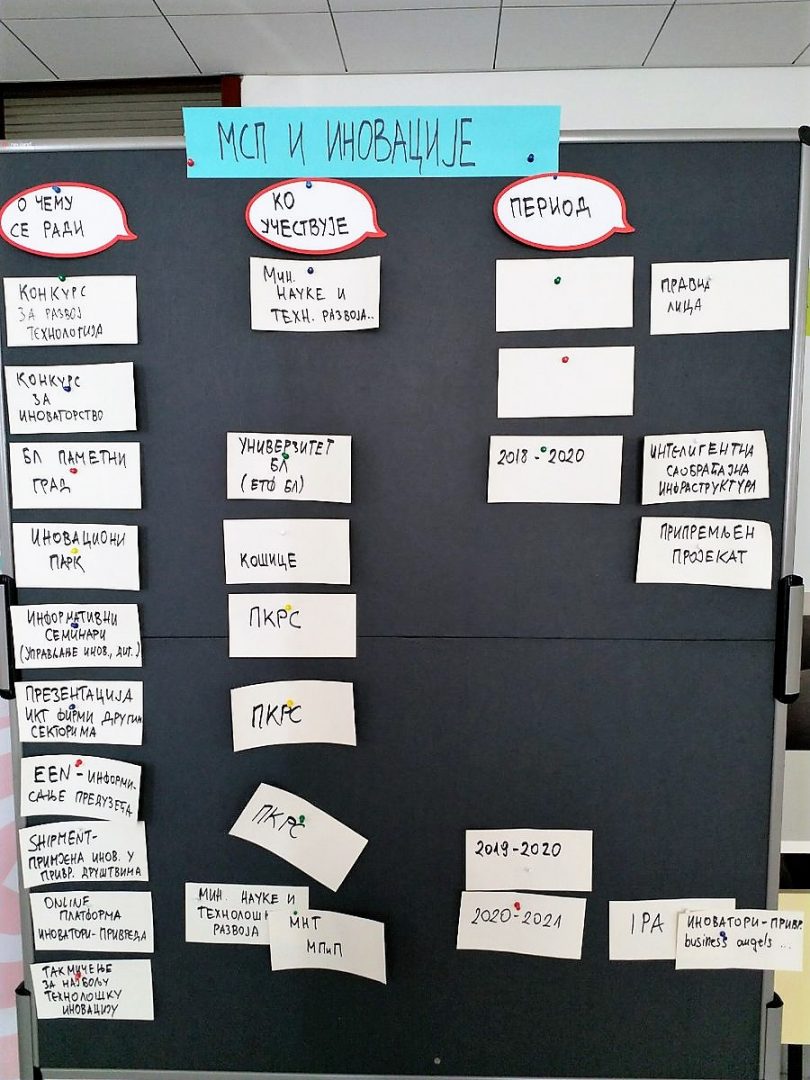 МСП И ИНОВАЦИЈЕ
О ЧЕМУ
СЕ РАДИ
КО
УЧЕСТВУЈЕ
ПЕРИОД
КОНКУРС
ЗА РАЗВОЈ
ТЕХНОЛОГИЈА
Мин.
НАУКЕ И
ТЕХН. РАЗВОЈА..
ПРАВНА
ЛИЦА
КОНКУРС
ЗА
ИНОВАТОРСТВО
БЛ ПАМЕТНИ
ГРАД
УНИВЕРЗИТЕТ
БЛ
(ЕТФ БЛ)
2018-2020
ИНТЕЛИГЕНТНА
САОБРАЋАЈНА
ИНФРАСТРУКТУРА
ИНОВАЦИОНИ
ПАРК
КОШИЦЕ
ПРИПРЕМЉЕН
ПРОЈЕКАТ
ИНФОРМАТИВНИ
СЕМИНАРИ
(УПРАВЉАЊЕ ИНОВ., ДИГ.)
ПКРС
ПРЕЗЕНТАЦИЈА
ИКТ ФИРМИ ДРУГИМ
СЕКТОРИМА
ПКРС
EEN - ИНФОРМИ-
САЊЕ ПРЕДУЗЕЋА
ПКРС
SHIPMENT-
ПРИМЈЕНА ИНОВ. У
ПРИВР. ДРУШТВИМА
2019-2020
ONLINE
ПЛАТФОРМА
ИНОВАТОРИ-ПРИВРЕДА
МИН. НАУКЕ И
ТЕХНОЛОШК
РАЗВОЈА
МНТ
МПиП
2020-2021
IPA
ИНОВАТОРИ-ПРИВР.
business angels ...
ТАКМИЧЕЊЕ
ЗА НАЈБОЉУ
ТЕХНОЛОШКУ
ИНОВАЦИЈУ